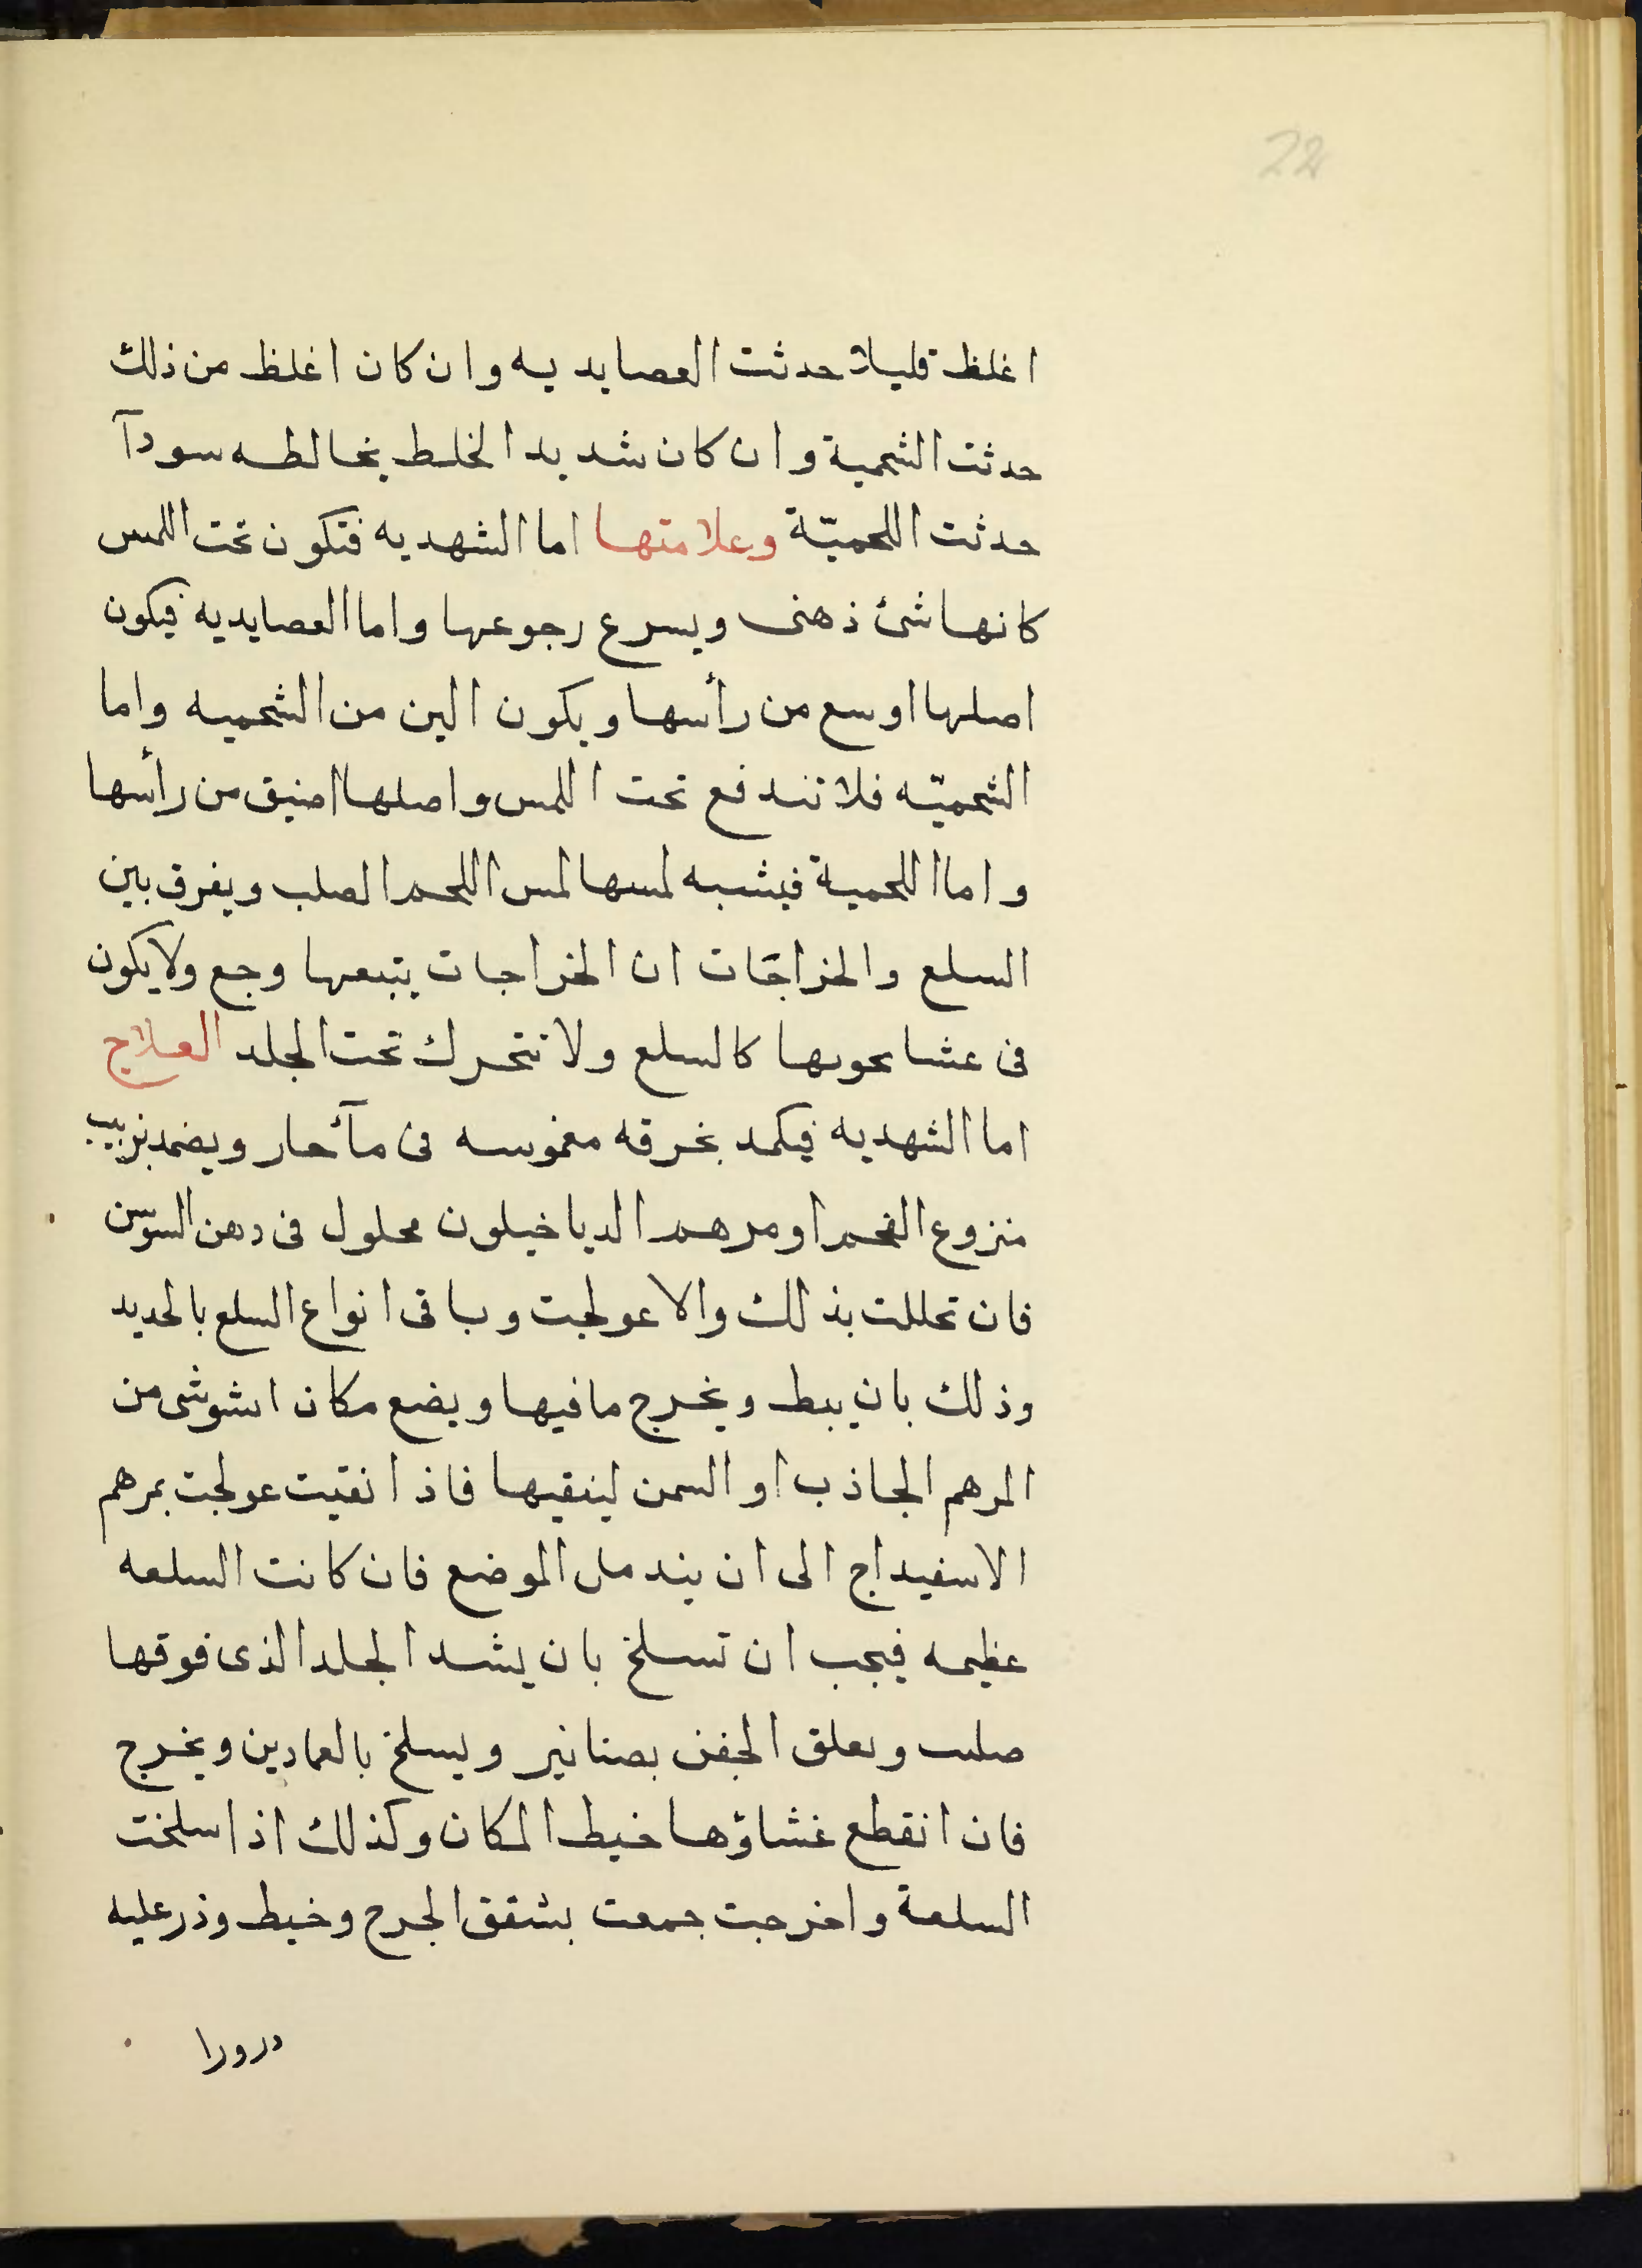 22
اغلظ قليلا حدثت العصايديه وان كان اغلظ من ذلك
حدثت الشحمية وان كان شديد الخلط يخالطه سودآ
حدثت اللحميّة وعلامتها اما الشهديه فتكون تحت اللمس
كانها شئ ذهنى ويسرع رجوعها واما العصايديه فيكون
اصلها اوسع من رأسها ويكون الين من الشحميه واما
الشحميّه فلا تندفع تحت اللمس واصلها اضيق من رأسها
واما اللحمية فيشبه لمسها لمس اللحم الصلب ويفرق بين
السلع والخراجات ان الخراجات يتبعها وجع ولا يكون
فى عشا يحويها كالسلع ولا تتحرك تحت الجلد العلاج
اما الشهديه فيكمد بخرقه مغموسه فى مآء حار ويضمد بزبيب
منزوع الفحم او مرهم الدياخيلون محلول فى دهن السوسن
فان تحللت بذلك والا عولجت وباقى انواع السلع بالحديد
وذلك بان يبط ويخرج ما فيها ويضع مكان الشوشى من
المرهم الجاذب او السمن لينقيها فاذا نقيت عولجت بمرهم
الاسفيداج الى ان يندمل الموضع فان كانت السلعه
عظيمه فيجب ان تسلخ بان يشد الجلد الذى فوقها
صلب ويعلق الجفن بصنانير ويسلخ بالعمادين ويخرج
فان انقطع غشاؤها خيط المكان وكذلك اذا سلخت
السلعة واخرجت جمعت بشقق الجرح وخيط وذر عليه
درورا